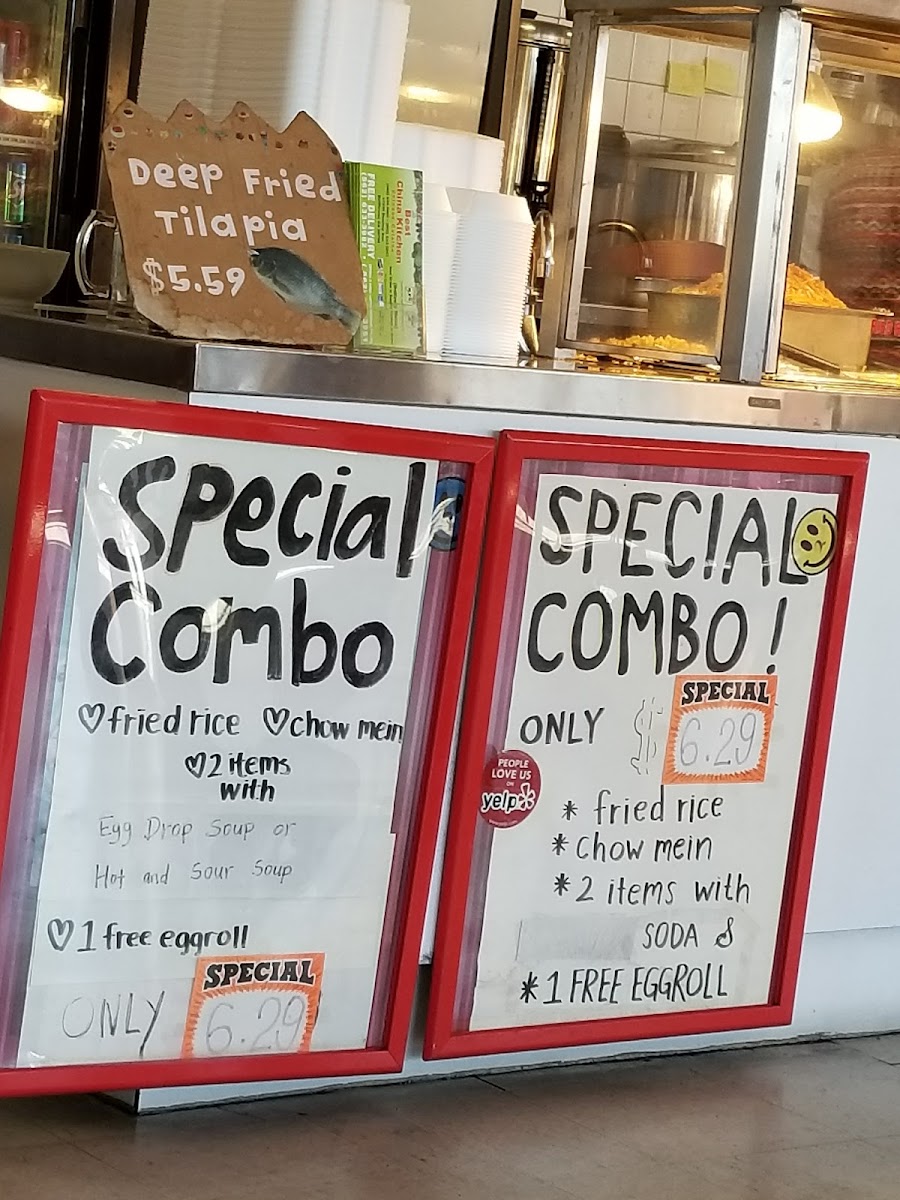 Deep Fried
Tilapia
$5.59
Best
China Kitchen
FREE DELIVERY
Special
Combo
♡fried rice ♡chow mein
♡2 items
with
Egg Drop Soup or
Hot and Sour Soup
♡1 free eggroll
SPECIAL
ONLY 6.29
SPECIAL
COMBO!
SPECIAL
ONLY $ 6.29
PEOPLE
LOVE US
ON
yelp
* fried rice
* chow mein
* 2 items with
SODA &
* 1 FREE EGGROLL